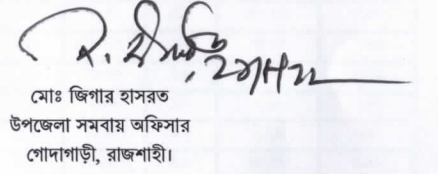 মোঃ জিগার হাসরত
উপজেলা সমবায় অফিসার
গোদাগাড়ী, রাজশাহী।